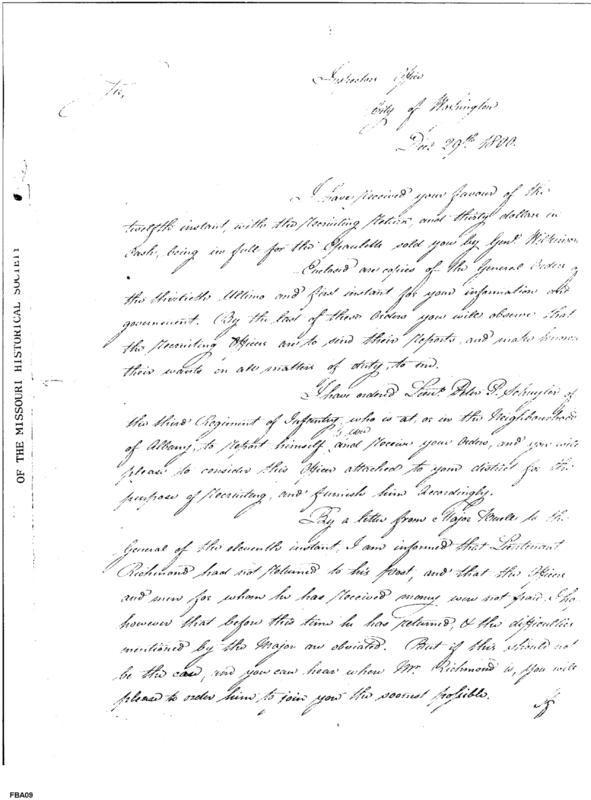 Inspectors Office
Sir,
City of Washington
Decr 29th 1800.
I have received your favour of the
twelfth instant, with the Recruiting Return, and thirty dollars in
Cash, being in full for the Epaulette sold you by Genl. Wilkinson
Enclosed are copies of the General Orders of
the thirtieth Ultimo and first instant for your information and
government. By the last of these Orders you will observe that
the Recruiting Officers are to send their Reports, and make known
their wants on all matters of duty, to me.
I have ordered Lieut. Peter P. Schuyler of
the third Regiment of Infantry, who is at, or in the Neighbourhood
of Albany, to Report himself to you and Receive your Orders, and you will
please to consider this Officer attached to your district for the
purpose of Recruiting, and furnish him Accordingly.
By a letter from Major to the
General of the eleventh instant, I am informed that Lieutenant
Richmond had not Returned to his Post, and that the Officers
and men for whom he has Received money were not paid. I hope
however that before this time he has Returned, & the difficulties
mentioned by the Major are obviated. But if this should not
be the case, and you can hear where Mr. Richmond is, you will
please to order him to join you the soonest possible.
OF THE MISSOURI HISTORICAL SOCIETY
FBA09